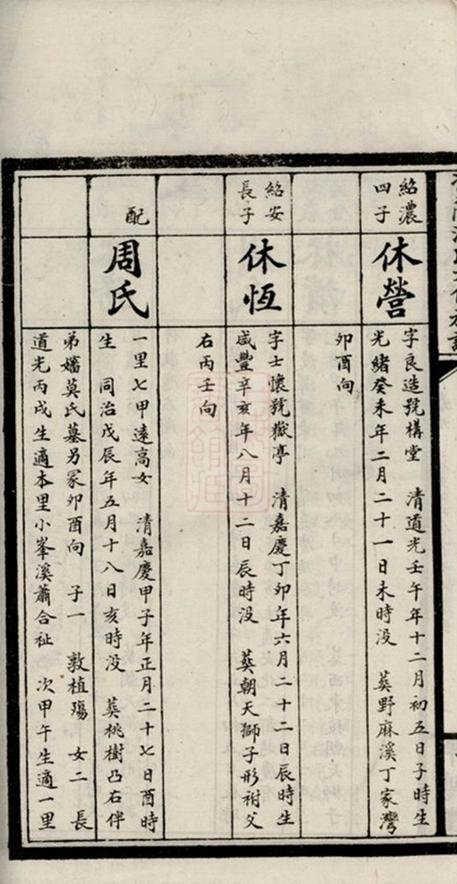 紹濃
四子
休營
字良造號構堂 清道光壬午年十二月初五日子時生
光緒癸未年二月二十一日未時没 葬野麻溪丁家灣
卯酉向
紹安
長子
休恆
字士懷號嶽亭 清嘉慶丁卯年六月二十二日辰時生
咸豐辛亥年八月十二日辰時没 葬朝天獅子形祔父
右丙壬向
配
周氏
一里七甲遠高女 清嘉慶甲子年正月二十七日酉時
生 同治戊辰年五月十八日亥時没 葬桃樹凸右伴
弟嬸莫氏墓另冢卯酉向 子一 敦植殤 女二 長
道光丙戌生適本里小峯溪蕭合祉 次甲午生適一里